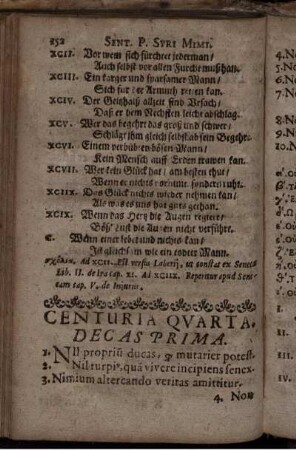 252 SENT. P. SYRI MIMI.
XCII. Vor wem sich fürchtet jederman/
Auch selbst vor allen Furcht muß han.
XCIII. Ein karger und sparsamer Mann/
Sich für der Armuth retten kan.
XCIV. Der Geitzhalß allzeit find Ursach/
Daß er dem Nechsten leicht abschlag.
XCV. Wer das begehrt das groß und schwer/
Schlägt ihm gleich selbst ab sein Begehr.
XCVI. Einem verbübeten bösen Mann/
Kein Mensch auff Erden trawen kan.
XCVII. Wer kein Glück hat am besten thut/
Wenn er nichts sondern ruht.
XCIIX. Das Glück nichts wieder nehmen kan/
Als was es uns hat guts gethan.
XCIX. Wenn das Hertz die Augen regiert/
die Augen nicht verführt.
C. Wenn einer lebet und nichts kan/
Ist gleichsam wie ein todter Mann.
Ad XCII. Est versus Laberij, ut constat ex Seneca
Lib. II. de Ira cap. XI. Ad XCIIX. Reperitur apud Sen
tam cap. V. de
CENTURIA QVARTA.
DECAS PRIMA.
1. NIl propriũ ducas, qđ mutarier potest.
2. Nil turpiꝰ, quã vivere incipiens senex.
3. Nimium altercando veritas amittitur.
4. Non